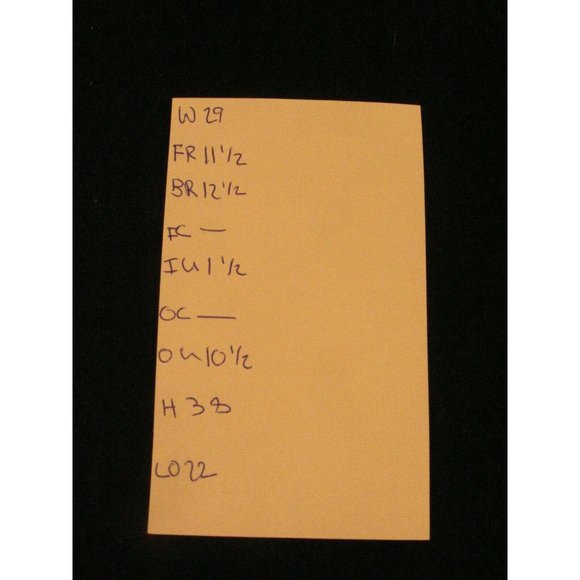 W 29
FR 11 1/2
BR 12 1/2
IC —
IU 1 1/2
OC —
OU 10 1/2
H 38
LO 22